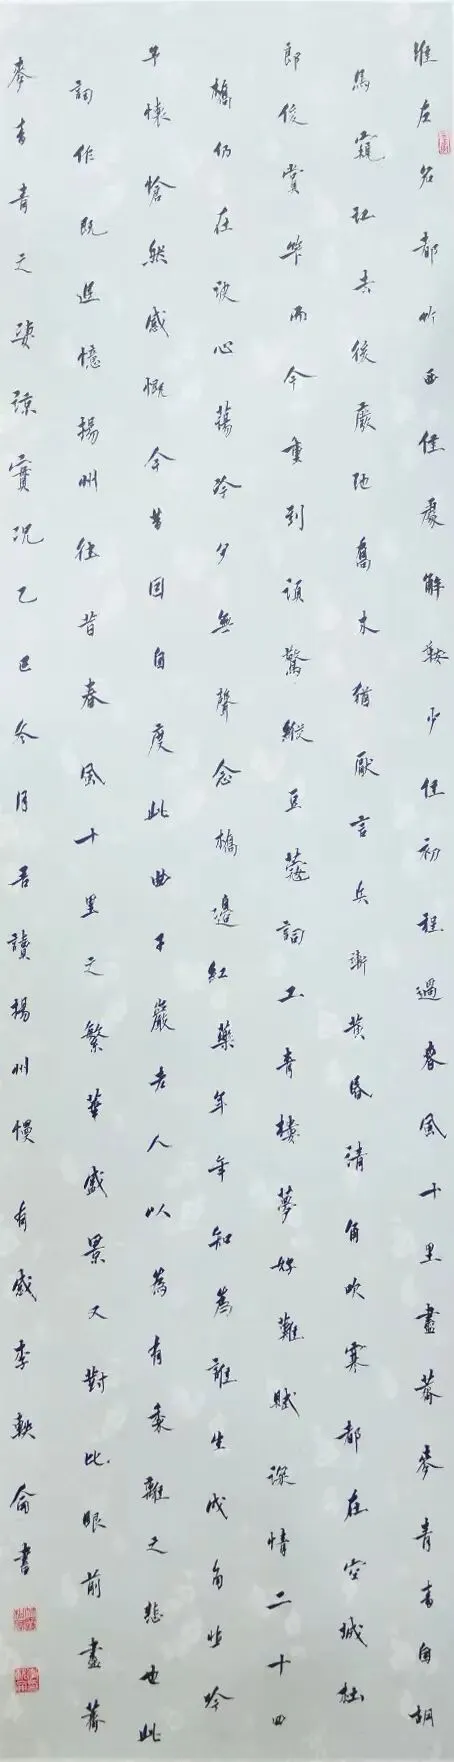 淮左名都竹西佳處解鞍少住初程過春風十里盡薺麥青青自胡
馬窺江去後廢池喬木猶厭言兵漸黃昏清角吹寒都在空城杜
郎俊賞算而今重到須驚縱豆蔻詞工青樓夢好難賦深情二十四
橋仍在波心蕩冷夕無聲念橋邊紅藥年年知為誰生戍角悲吟
予懷愴然感慨今昔因自度此曲千巖老人以為有黍離之悲也此
詞作既追憶揚州往昔春風十里之繁華盛景又對比眼前盡薺
麥青青之淒涼實況乙巳冬月吾讀揚州慢有感李軼侖書